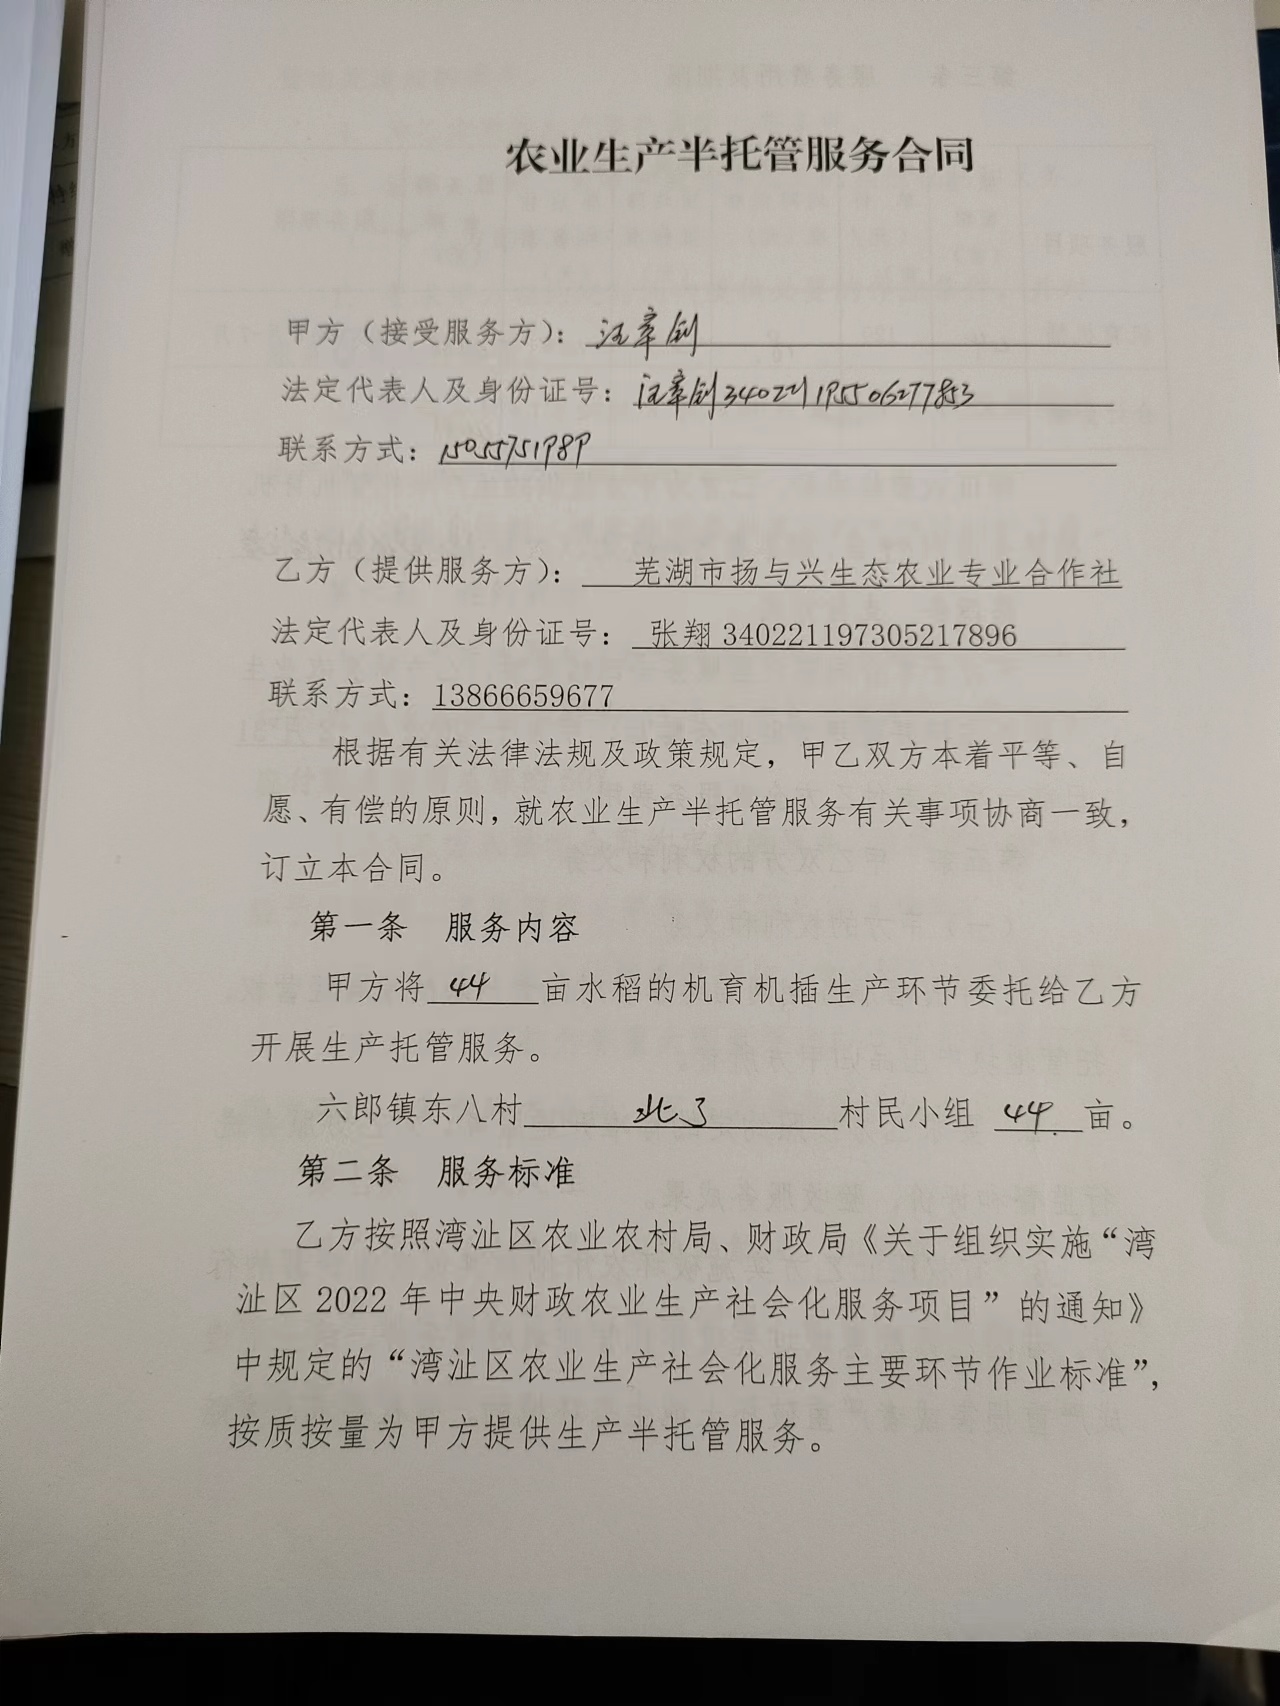 农业生产半托管服务合同
甲方（接受服务方）：汪章钊
法定代表人及身份证号：汪章钊340221195506277853
联系方式：15055751989
乙方（提供服务方）： 芜湖市扬与兴生态农业专业合作社
法定代表人及身份证号： 张翔 340221197305217896
联系方式：13866659677
根据有关法律法规及政策规定，甲乙双方本着平等、自
愿、有偿的原则，就农业生产半托管服务有关事项协商一致，
订立本合同。
第一条 服务内容
甲方将 44 亩水稻的机育机插生产环节委托给乙方
开展生产托管服务。
六郎镇东八村 北 村民小组 44 亩。
第二条 服务标准
乙方按照湾沚区农业农村局、财政局《关于组织实施“湾
沚区 2022 年中央财政农业生产社会化服务项目”的通知》
中规定的“湾沚区农业生产社会化服务主要环节作业标准”，
按质按量为甲方提供生产半托管服务。